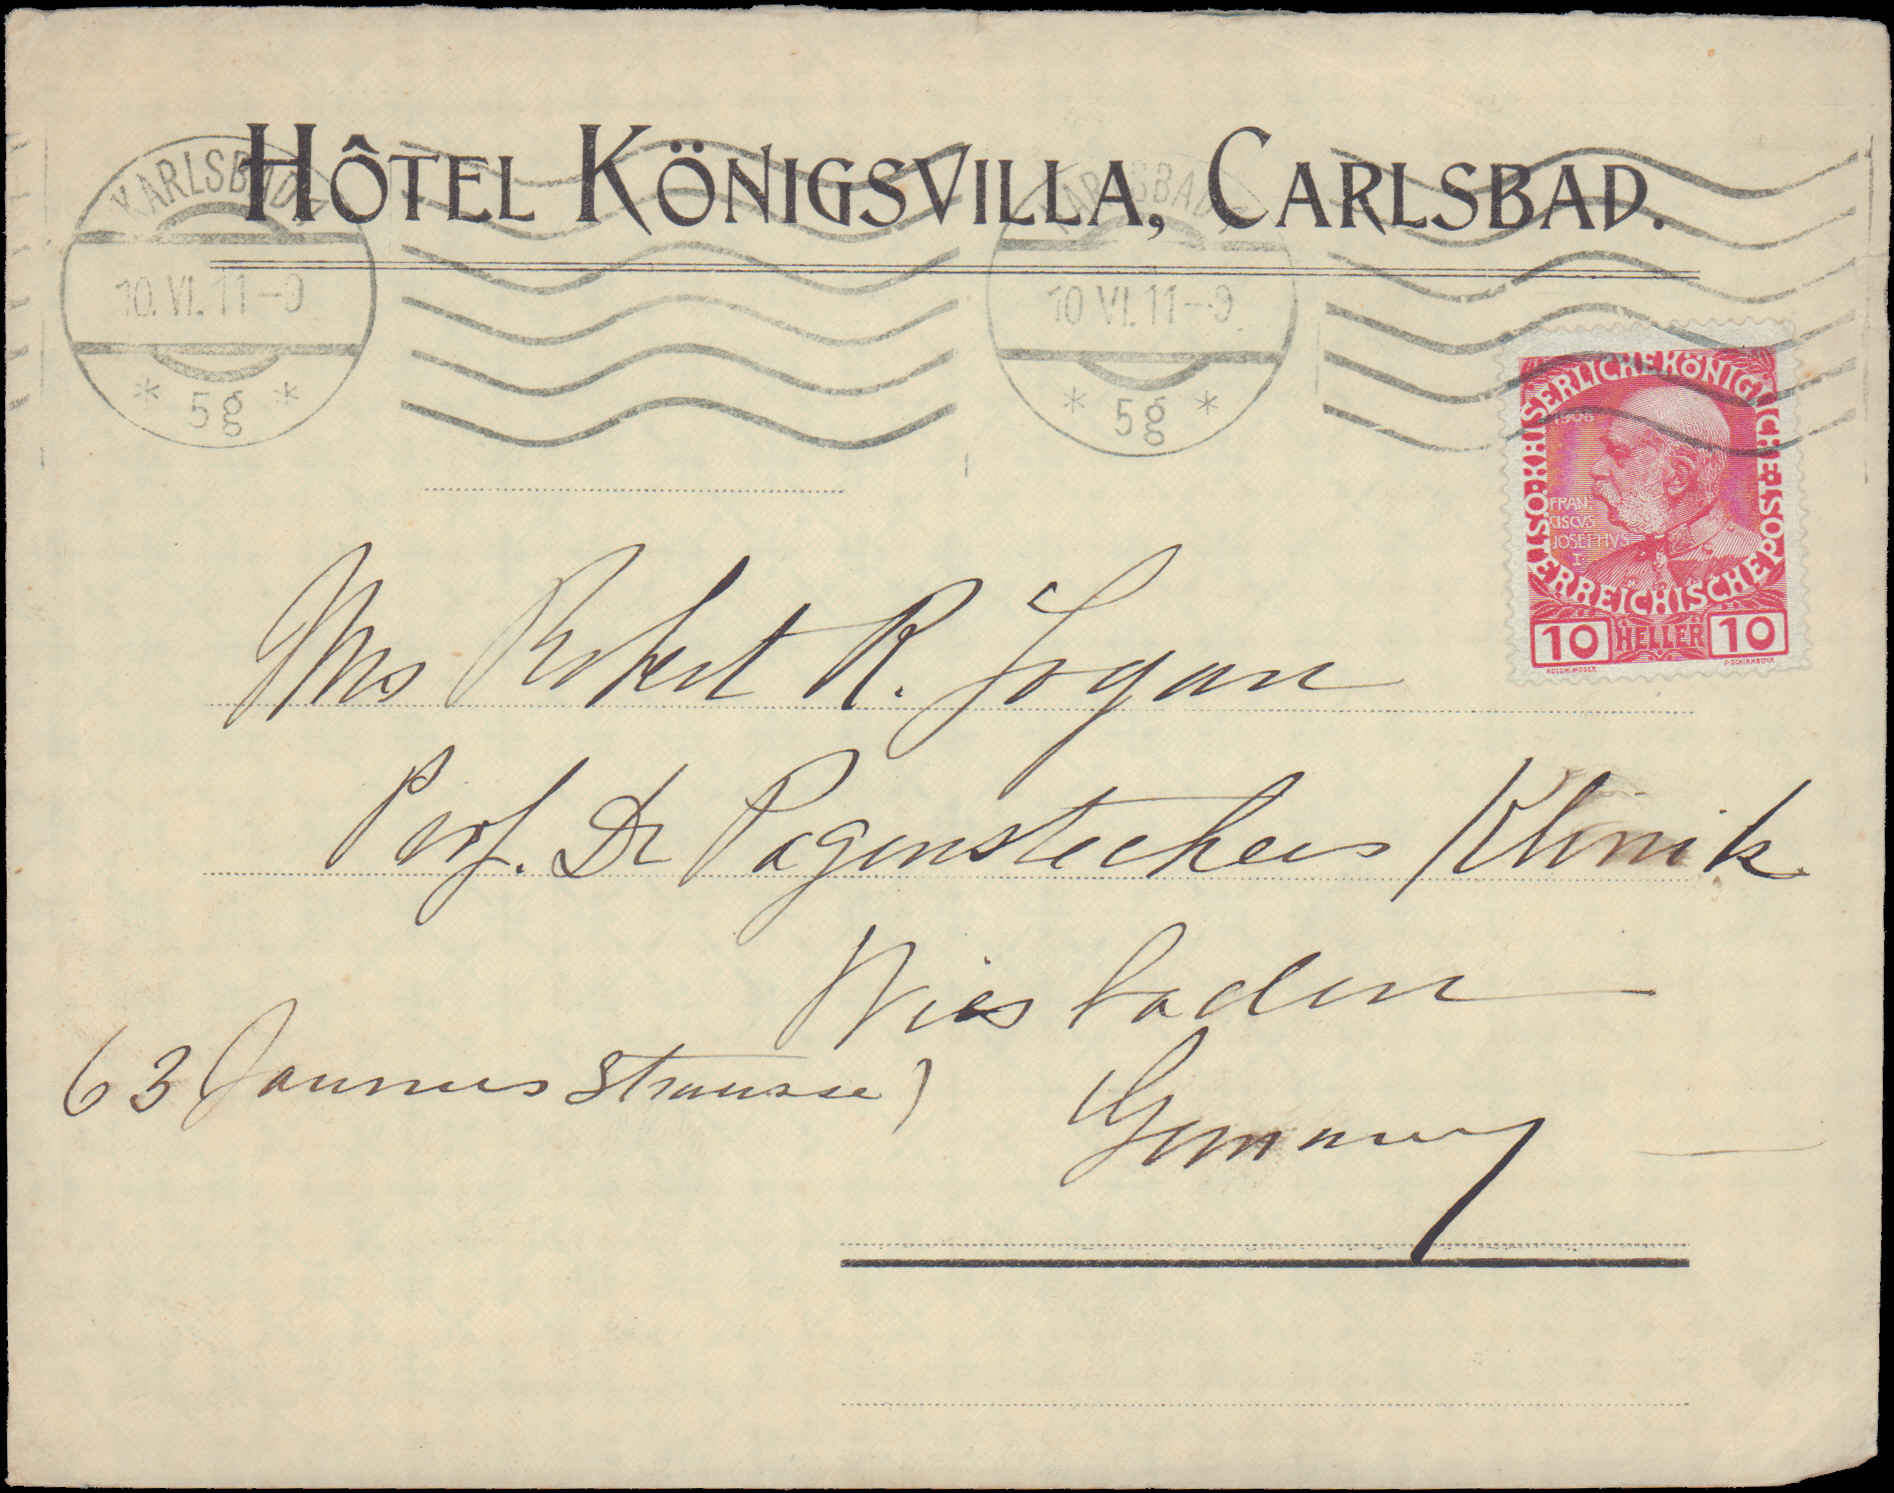 HÔTEL KÖNIGSVILLA, CARLSBAD.
KARLSBAD
10.VI.11-9
* 5g *
KARLSBAD
10 VI.11-9
* 5g *
KAISERLICHE KÖNIGLICHE
ÖSTERREICHISCHE POST
1908
FRAN
CISCVS
IOSEPHVS
I
10 HELLER 10
KOLOM. MOSER
F. SCHIRNBÖCK
Mrs Robert R. Logan
Prof. Dr Pagenstechers Klinik
Wiesbaden
63 Taunus Strausse)
Germany